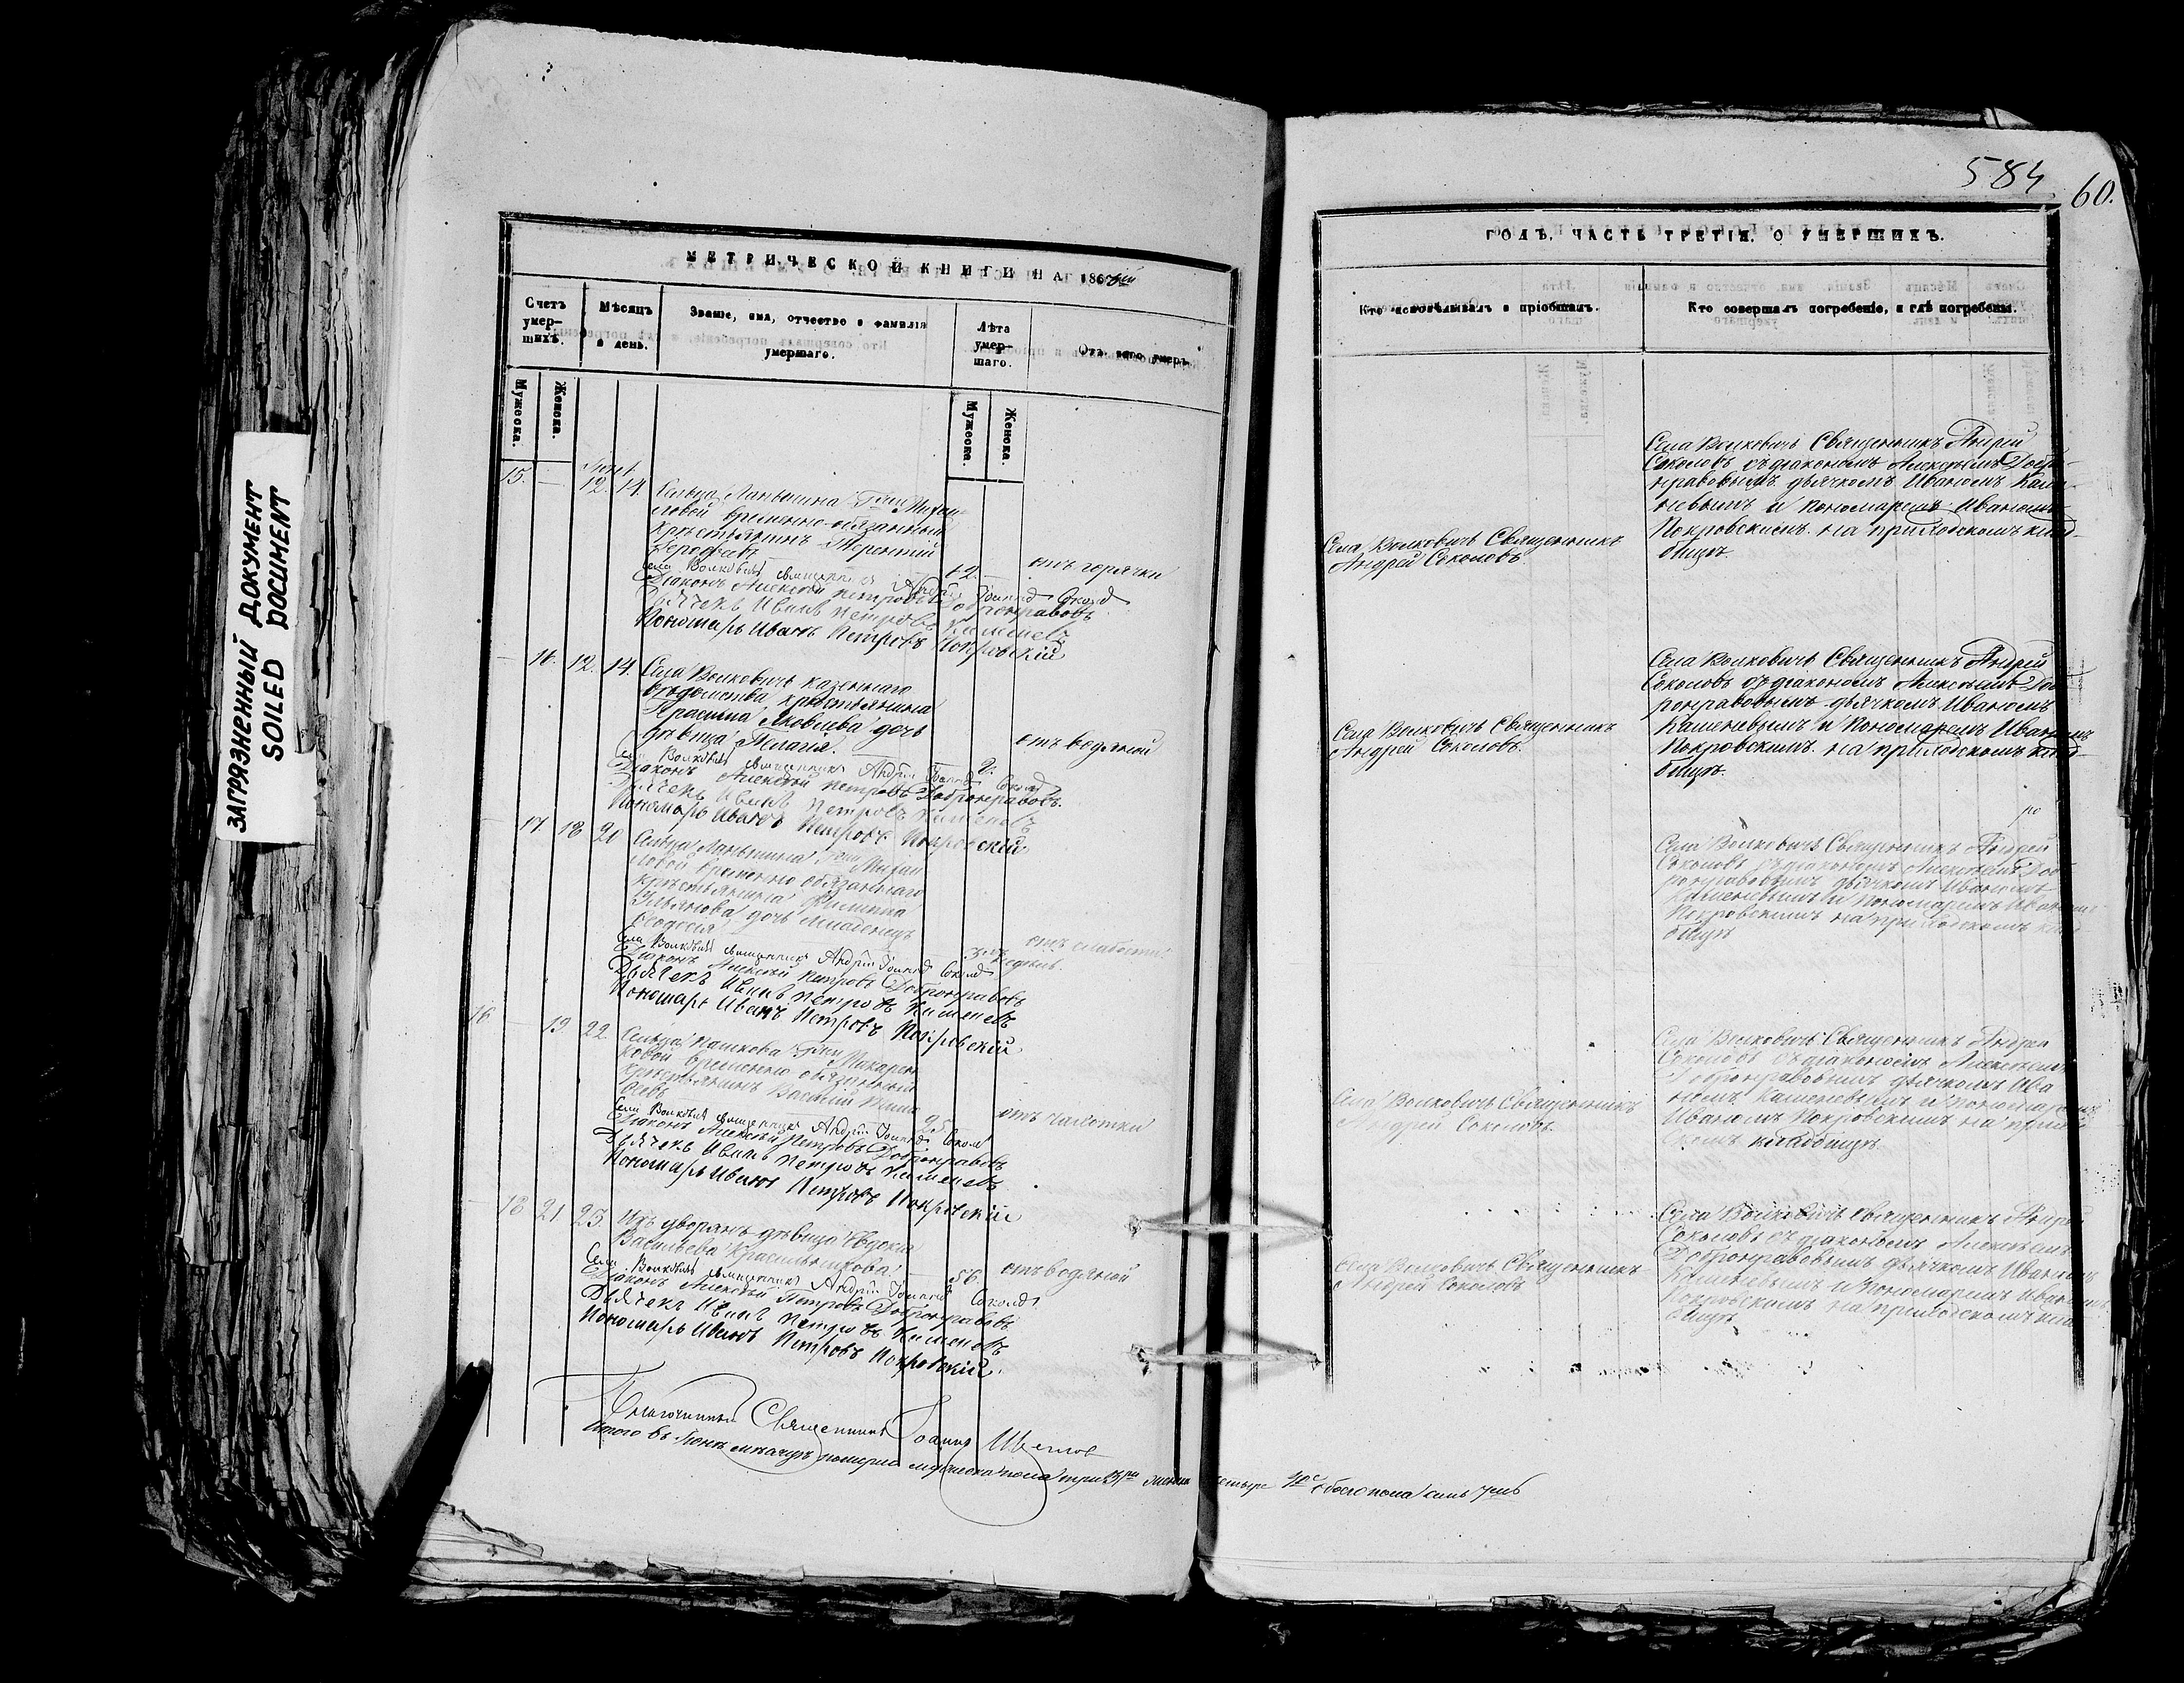 ЗАГРЯЗНЕННЫЙ ДОКУМЕНТ
SOILED DOCUMENT
МЕТРИЧЕСКОЙ КНИГИ НА 186
Счетъ умер-шихъ.
Мѣсяцъ и день.
Званіе, имя, отчество и фамилія умершаго.
Лѣта умер-шаго.
Отъ чего умеръ.
Мужеска.
Женска.
Мужеска.
Женска.
15. — 12. 14. Сельца Ланьшина Г-жи
временно-обязанный
крестьянинъ Терентій
Ерофеевъ 42. отъ горячки
Села Волковичъ священникъ Андрей Іоанновъ Соколовъ
Діаконъ Алексѣй Петровъ Добронравовъ
Дьячекъ Иванъ Петровъ Каменевъ
Пономарь Иванъ Петровъ Покровскій
— 16. 12. 14. Села Волковичъ казеннаго
вѣдомства крестьянина
Яковлева дочь
дѣвица Пелагія. отъ водяной
Села Волковичъ священникъ Андрей Іоанновъ Соколовъ
Діаконъ Алексѣй Петровъ Добронравовъ.
Дьячекъ Иванъ Петровъ Каменевъ
Пономарь Иванъ Петровъ Покровскій
— 17 18 20 Сельца Ланьшина Г-жи
временно обязаннаго
крестьянина Филиппа
дочь младенецъ
Ѳеодосія 3хъ недѣль. отъ слабости
Села Волковичъ священникъ Андрей Іоанновъ Соколовъ
Діаконъ Алексѣй Петровъ Добронравовъ
Дьячекъ Иванъ Петровъ Каменевъ
Пономарь Иванъ Петровъ Покровскій
16 — 19 22 Сельца Пашкова Г-жи Макарен-
ковой временно обязанный
крестьянинъ Василій
25 отъ чахотки
Села Волковичъ священникъ Андрей Іоанновъ Соколовъ
Діаконъ Алексѣй Петровъ Добронравовъ
Дьячекъ Иванъ Петровъ Каменевъ
Пономарь Иванъ Петровъ Покровскій
— 18 21 23 Изъ дворянъ дѣвица Евдокія
Васильева Красильникова 56. отъ водяной
Села Волковичъ священникъ Андрей Іоанновъ Соколовъ
Діаконъ Алексѣй Петровъ Добронравовъ
Дьячекъ Иванъ Петровъ Каменевъ
Пономарь Иванъ Петровъ Покровскій.
Благочинный Священникъ Іоаннъ
Итого въ Іюнѣ мѣсяцѣ померло мужеска пола три 3ри женска четыре 4ре обоего пола семь 7мь
584
60.
ГОДЪ, ЧАСТЬ ТРЕТІЯ, О УМЕРШИХЪ.
Кто исповѣдывалъ и пріобщалъ.
Кто совершалъ погребеніе, и гдѣ погребены.
Села Волковичъ Священникъ
Андрей Соколовъ.
Села Волковичъ Священникъ Андрей
Соколовъ съ діакономъ Алексѣемъ Добро-
нравовымъ дьячкомъ Иваномъ Каме-
невымъ и пономаремъ Иваномъ
Покровскимъ. на приходскомъ клад-
бищѣ.
Села Волковичъ Священникъ
Андрей Соколовъ.
Села Волковичъ Священникъ Андрей
Соколовъ съ діакономъ Алексѣемъ Доб-
ронравовымъ дьячкомъ Иваномъ
Каменевымъ и Пономаремъ Иваномъ
Покровскимъ. на приходскомъ клад-
бищѣ.
Села Волковичъ Священникъ Андрей
Соколовъ съ діакономъ Алексѣемъ Доб-
ронравовымъ дьячкомъ Иваномъ
Каменевымъ и Пономаремъ Иваномъ
Покровскимъ на приходскомъ клад-
бищѣ
Села Волковичъ Священникъ
Андрей Соколовъ.
Села Волковичъ Священникъ Андрей
Соколовъ съ діакономъ Алексѣемъ
Добронравовымъ дьячкомъ Ива-
номъ Каменевымъ и пономаремъ
Иваномъ Покровскимъ на приход-
скомъ кладбищѣ.
Села Волковичъ Священникъ
Андрей Соколовъ
Села Волковичъ Священникъ Андрей
Соколовъ съ діакономъ Алексѣемъ
Добронравовымъ дьячкомъ Иваномъ
Каменевымъ и Пономаремъ Иваномъ
Покровскимъ на приходскомъ клад-
бищѣ